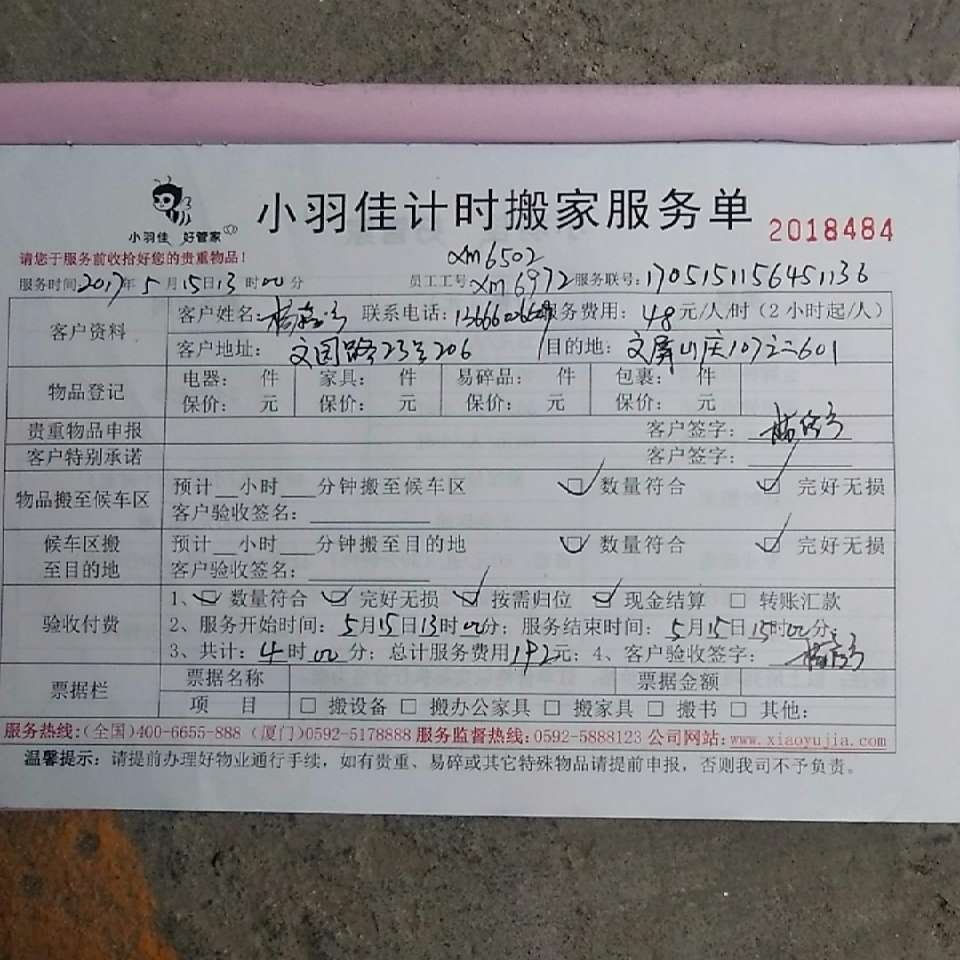 小羽佳 好管家
小羽佳计时搬家服务单
2018484
请您于服务前收拾好您的贵重物品！
xm6502
服务时间：2017年5月15日13时00分 员工工号：xm6972 服务联号：1705151156451136
客户资料
客户姓名： 联系电话： 服务费用：48元/人/时（2小时起/人）
客户地址：文园路23号206 目的地：文屏山庄107之二601
物品登记
电器： 件 家具： 件 易碎品： 件 包裹： 件
保价： 元 保价： 元 保价： 元 保价： 元
贵重物品申报 客户签字：
客户特别承诺 客户签字：
物品搬至候车区
预计__小时___分钟搬至候车区 数量符合 完好无损
客户验收签名：
候车区搬至目的地
预计__小时___分钟搬至目的地 数量符合 完好无损
客户验收签名：
验收付费
1、数量符合 完好无损 按需归位 现金结算 □ 转账汇款
2、服务开始时间：5月15日13时00分；服务结束时间：5月15日15时00分；
3、共计：4时00分；总计服务费用192元；4、客户验收签字：
票据栏
票据名称 票据金额
项 目 □ 搬设备 □ 搬办公家具 □ 搬家具 □ 搬书 □ 其他：
服务热线：(全国)400-6655-888 (厦门)0592-5178888 服务监督热线：0592-5888123 公司网站：www.xiaoyujia.com
温馨提示：请提前办理好物业通行手续，如有贵重、易碎或其它特殊物品请提前申报，否则我司不予负责。